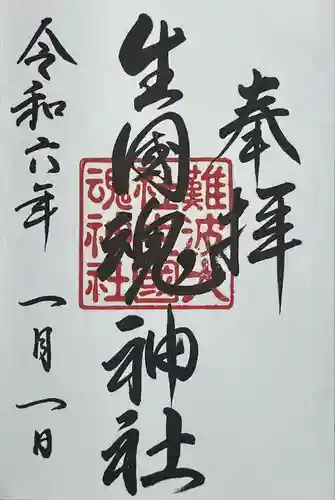 奉拝
生國魂神社
令和六年 一月一日
難波大
社生國
魂神社